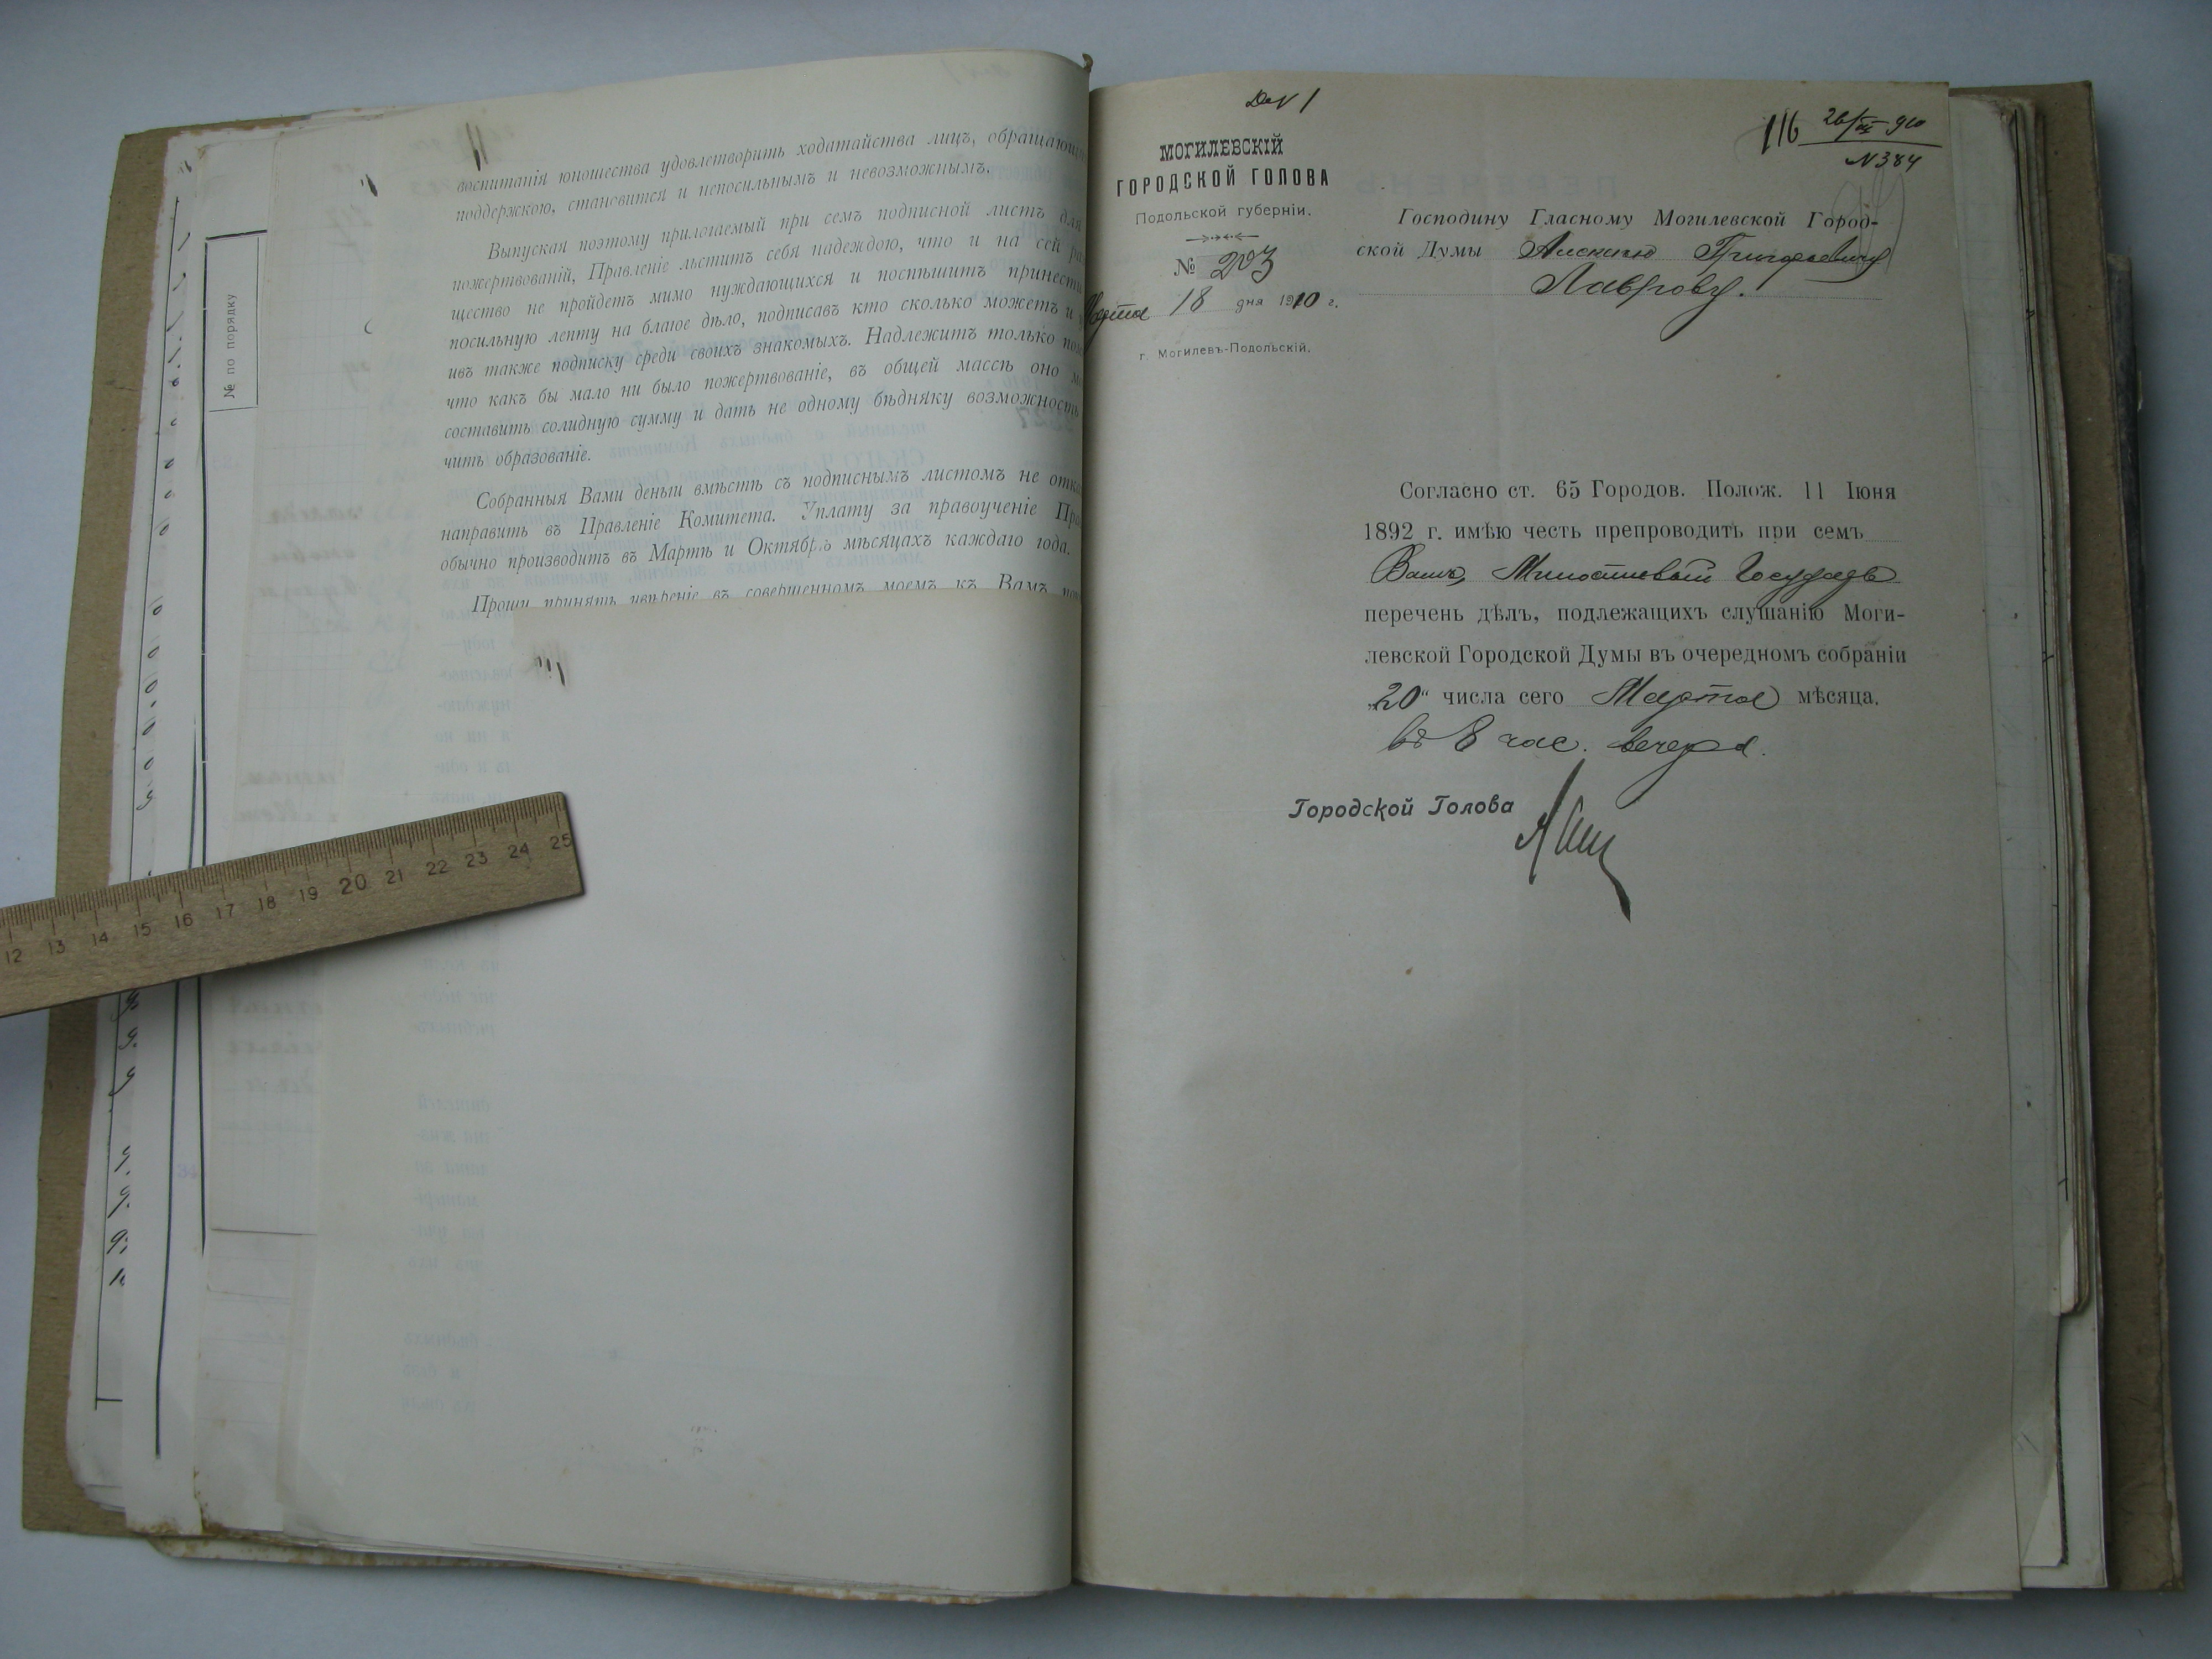 воспитанія юношества удовлетворить ходатайства лицъ,
поддержкою, становится и непосильнымъ и невозможнымъ.
Выпуская поэтому прилагаемый при семъ подписной листъ для
пожертвованій, Правленіе льститъ себя надеждою, что и на сей
щество не пройдетъ мимо нуждающихся и поспѣшитъ принести
посильную лепту на благое дѣло, подписавъ кто сколько можетъ и
ивъ также подписку среди своихъ знакомыхъ. Надлежитъ только
что какъ бы мало ни было пожертвованіе, въ общей массѣ оно
составить солидную сумму и дать не одному бѣдняку возможность
чить образованіе.
Собранныя Вами деньги вмѣстѣ съ подписнымъ листомъ не
направить въ Правленіе Комитета. Уплату за правоученіе
обычно производитъ въ Мартѣ и Октябрѣ мѣсяцахъ каждаго года.
Прошу принять увѣреніе въ совершенномъ моемъ къ Вамъ
№ по порядку
12 13 14 15 16 17 18 19 20 21 22 23 24 25
МОГИЛЕВСКІЙ
ГОРОДСКОЙ ГОЛОВА
Подольской губерніи.
№ 203
Марта 18 дня 1910 г.
г. Могилевъ-Подольскій.
116
26/III 910
№ 384
Господину Гласному Могилевской Город-
ской Думы Алексѣю Григорьевичу
Лаврову.
Согласно ст. 65 Городов. Полож. 11 Іюня
1892 г. имѣю честь препроводить при семъ
Вамъ, Милостивый Государь
перечень дѣлъ, подлежащихъ слушанію Моги-
левской Городской Думы въ очередномъ собраніи
„20“ числа сего Марта мѣсяца.
въ 8 час. вечера.
Городской Голова